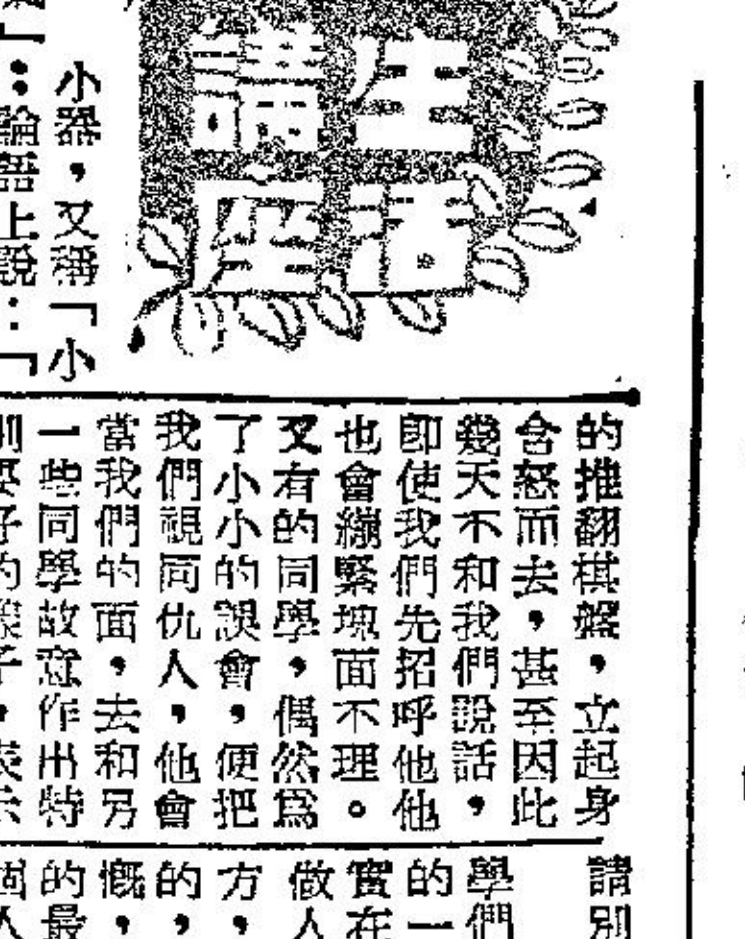 生活
講座
小器，又稱「小
」：論語上說：「
的推翻棋盤，立起身
含怒而去，甚至因此
幾天不和我們說話，
即使我們先招呼他他
也會綳緊塊面不理。
又有的同學，偶然爲
了小小的誤會，便把
我們視同仇人，他會
當我們的面，去和另
一些同學故意作出特
請別
學們
的一
實在
做人
方，
的，
慨，
的最